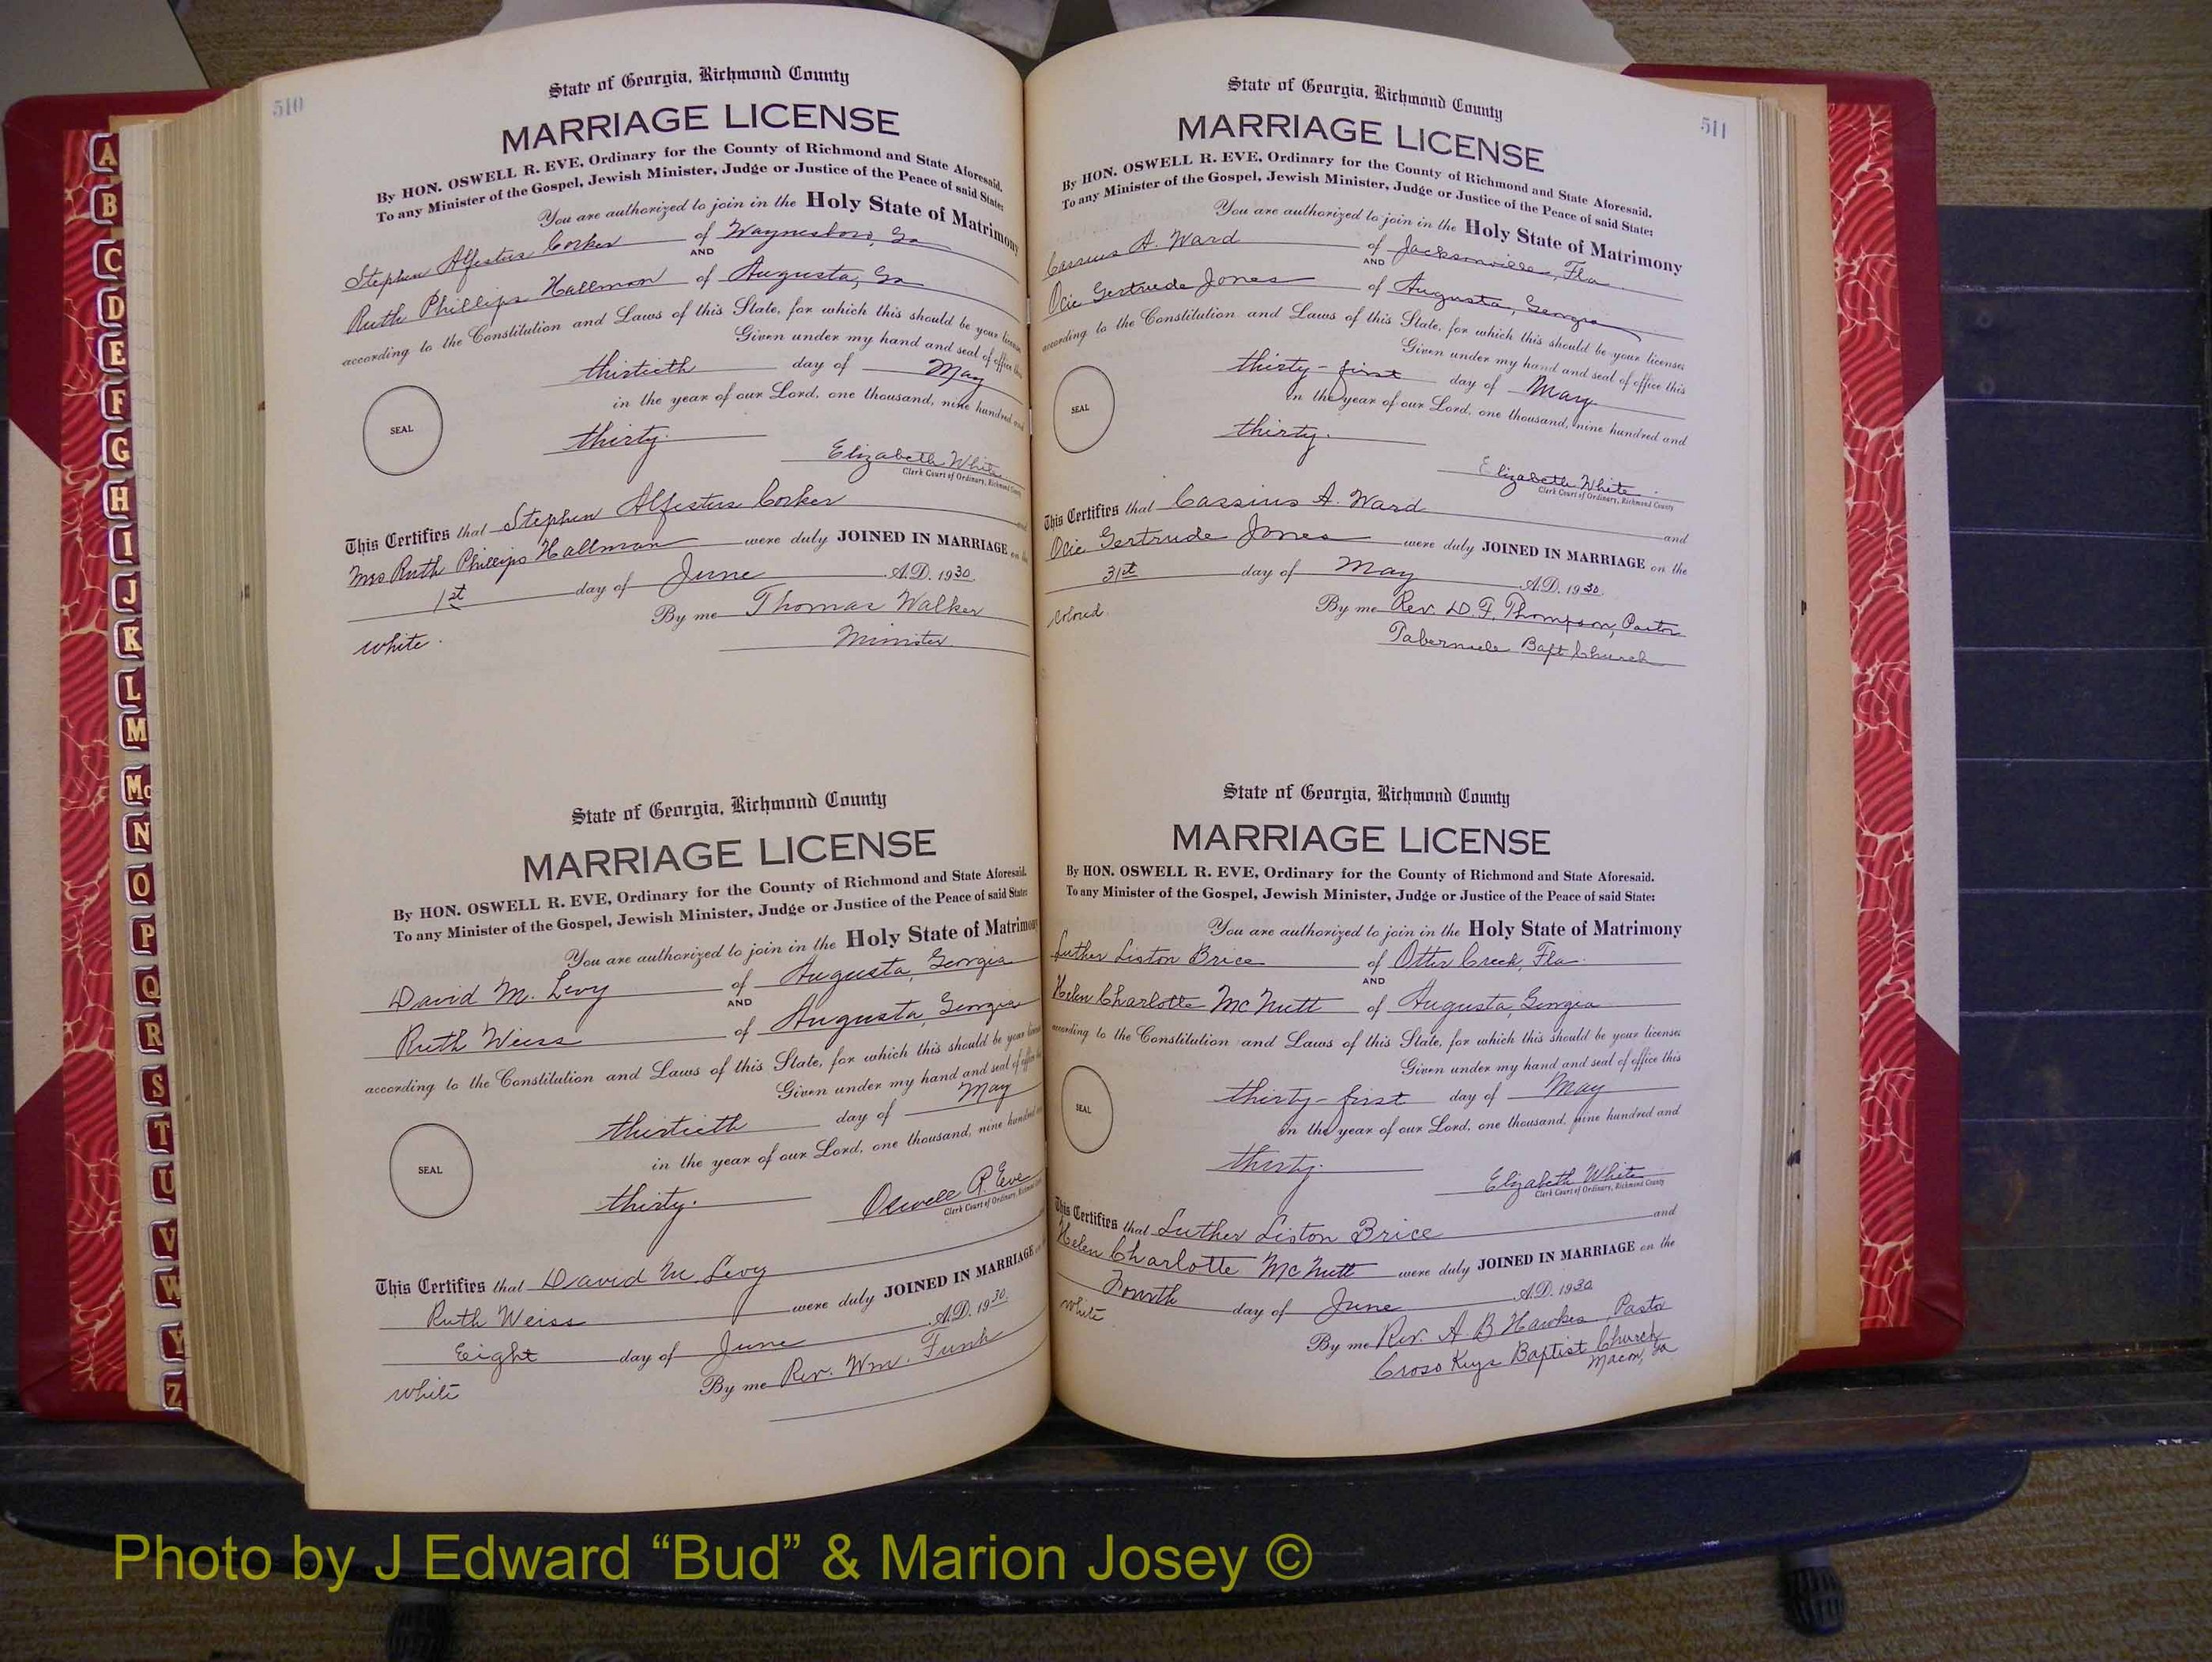 A
B
C
D
E
F
G
H
I
J
K
L
M
Mc
N
O
P
Q
R
S
T
U
V
W
Y
Z
510
State of Georgia, Richmond County
MARRIAGE LICENSE
By HON. OSWELL R. EVE, Ordinary for the County of Richmond and State Aforesaid.
To any Minister of the Gospel, Jewish Minister, Judge or Justice of the Peace of said State:
You are authorized to join in the Holy State of Matrimony
Stephen Alfestus Corker of Waynesboro, Ga
AND
Ruth Phillips Hallman of Augusta, Ga
according to the Constitution and Laws of this State, for which this should be your license
Given under my hand and seal of office this
thirtieth day of May
in the year of our Lord, one thousand, nine hundred and
SEAL
thirty.
Elizabeth White
Clerk Court of Ordinary, Richmond County
This Certifies that Stephen Alfestus Corker and
Mrs Ruth Phillips Hallman were duly JOINED IN MARRIAGE on the
1st day of June A.D. 1930.
By me Thomas Walker
white. Minister
State of Georgia, Richmond County
MARRIAGE LICENSE
By HON. OSWELL R. EVE, Ordinary for the County of Richmond and State Aforesaid.
To any Minister of the Gospel, Jewish Minister, Judge or Justice of the Peace of said State:
You are authorized to join in the Holy State of Matrimony
David M. Levy of Augusta, Georgia
AND
Ruth Weiss of Augusta, Georgia
according to the Constitution and Laws of this State, for which this should be your license
Given under my hand and seal of office
thirtieth day of May
in the year of our Lord, one thousand, nine hundred
SEAL
thirty.
Oswell R Eve
Clerk Court of Ordinary, Richmond
This Certifies that David M Levy
Ruth Weiss were duly JOINED IN MARRIAGE
Eight day of June A.D. 1930.
white By me Rev. Wm. Funk
511
State of Georgia, Richmond County
MARRIAGE LICENSE
By HON. OSWELL R. EVE, Ordinary for the County of Richmond and State Aforesaid.
To any Minister of the Gospel, Jewish Minister, Judge or Justice of the Peace of said State:
You are authorized to join in the Holy State of Matrimony
Cassius A. Ward of Jacksonville, Fla
AND
Ocie Gertrude Jones of Augusta, Georgia
according to the Constitution and Laws of this State, for which this should be your licenses
Given under my hand and seal of office this
thirty-first day of May
in the year of our Lord, one thousand, nine hundred and
SEAL
thirty.
Elizabeth White
Clerk Court of Ordinary, Richmond County
This Certifies that Cassius A. Ward and
Ocie Gertrude Jones were duly JOINED IN MARRIAGE on the
31st day of May A.D. 1930.
Colored. By me Rev. D. F. Thompson, Pastor
Tabernacle Bapt Church
State of Georgia, Richmond County
MARRIAGE LICENSE
By HON. OSWELL R. EVE, Ordinary for the County of Richmond and State Aforesaid.
To any Minister of the Gospel, Jewish Minister, Judge or Justice of the Peace of said State:
You are authorized to join in the Holy State of Matrimony
Luther Liston Brice of Otter Creek, Fla.
AND
Helen Charlotte McNutt of Augusta, Georgia
according to the Constitution and Laws of this State, for which this should be your licenses
Given under my hand and seal of office this
thirty-first day of May
in the year of our Lord, one thousand, nine hundred and
SEAL
thirty.
Elizabeth White
Clerk Court of Ordinary, Richmond County
This Certifies that Luther Liston Brice and
Helen Charlotte McNutt were duly JOINED IN MARRIAGE on the
Fourth day of June A.D. 1930
white By me Rev. A. B Hawkes, Pastor
Cross Keys Baptist Church
Macon, Ga
Photo by J Edward “Bud” & Marion Josey ©